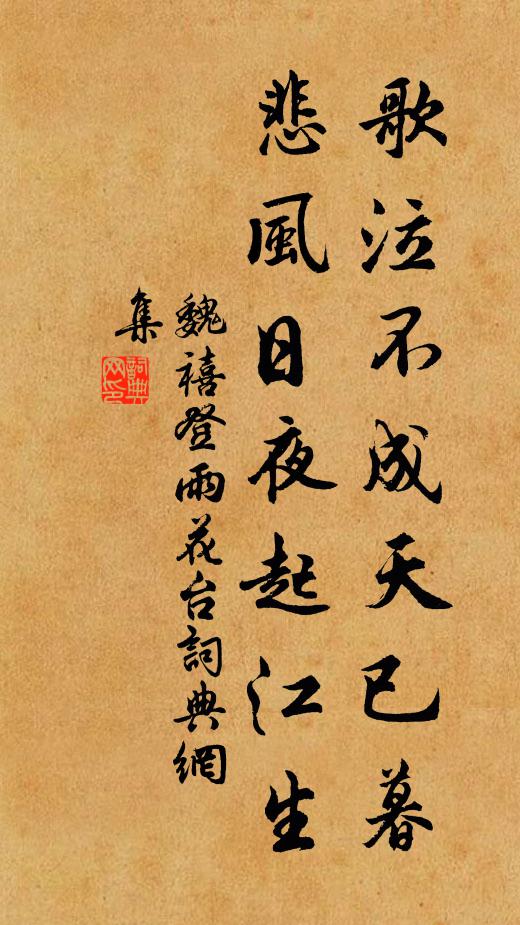 歌泣不成天已暮
悲風日夜起江生
魏禧登雨花台詞典網
集
詞典网印